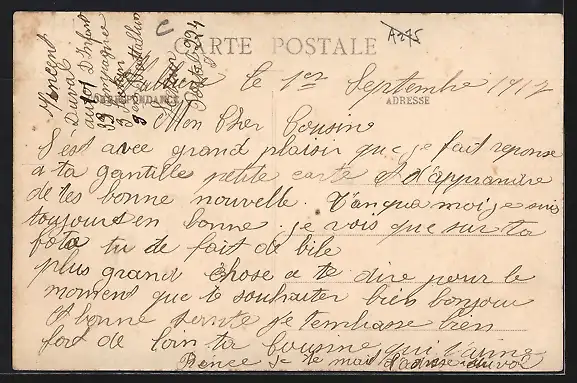 A245
CARTE POSTALE
CORRESPONDANCE
ADRESSE
le 1er Septembre 1917
Mon Cher Cousin
S'est avec grand plaisir que je fait reponse
a ta gantille petite carte et d'apprandre
de tes bonne nouvelle. Tanqua moi je suis
toujours en bonne. je vois que sur ta
foto tu de fait de bile
plus grand chose a te dire pour le
moment que te souhaiter bien bonjour
et bonne sernte je tembrasse bien
fort de loin ta Cousine qui t'aime
je te mai l'adrese
Vincent
Duval
au 101 D Infant
33 Compagnie
3 Bataillon
Secteur
Postal 224